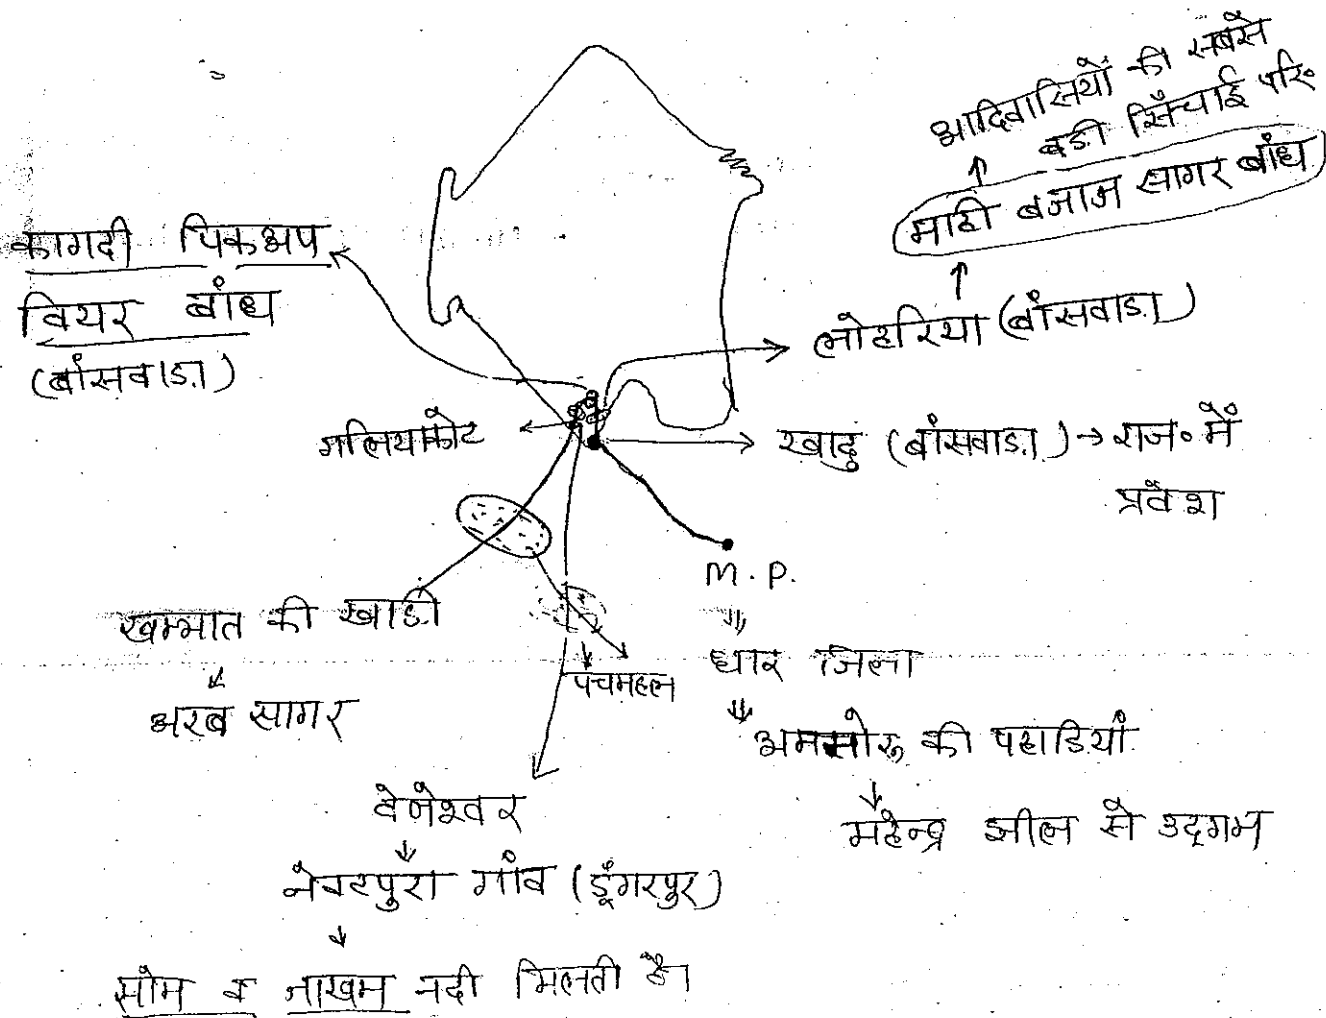 आदिवासियों की सबसे
बड़ी सिंचाई परि॰
माही बजाज सागर बांध
कागदी पिकअप
वियर बांध
(बांसवाड़ा)
लोहरिया (बांसवाड़ा)
गलियाकोट
खादु (बांसवाड़ा) → राज॰ में
प्रवेश
M.P.
खम्भात की खाड़ी
धार जिला
पंचमहल
अरब सागर
की पहाडियां
बेणेश्वर
महेन्द्र झील से उद्गम
नेवटपुरा गांव (डूंगरपुर)
सोम व जाखम नदी मिलती है।